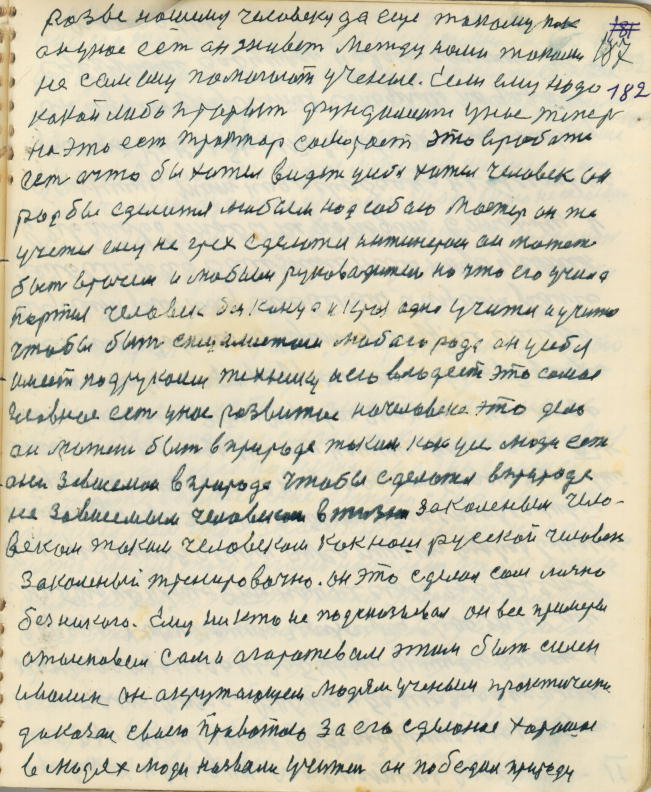 розве нашему человеку да еще такому как
он у нас ест он живет между нами таким
не сам ему помогают ученые. Если ему надо
182
какой либо прорыт фундамент у нас тепер
на это ест трактар это в работе
сет а что бы хотел видет у себя хотел человек он
рад бы сделатся любым над собою мастер он же
учится ему не грех сделатся инжинером он может
быт врачем и любым руководител но что его учила
партия человек без конца и края одно учится и учится
чтобы быт специалистом любого рода он у себя
имеет под руками технику и ею владеет это самое
главное ест у нас развитое на человеке это дело
он может быт в природе таким как уже люди ест
они зависимои в природе чтобы сделатся в природе
не зависимым человеком в жизни закаленым чело-
веком таким человеком как наш русской человек
закаленый тренировачно. он это сделал сам лично
без никого. Ему никто не подсказывал он все примеры
сам и этим быт силен
и волин он окружающем людям ученым практически
доказал своею правотою за его сделаное хорошое
в людях люди назвали учител он победил природу